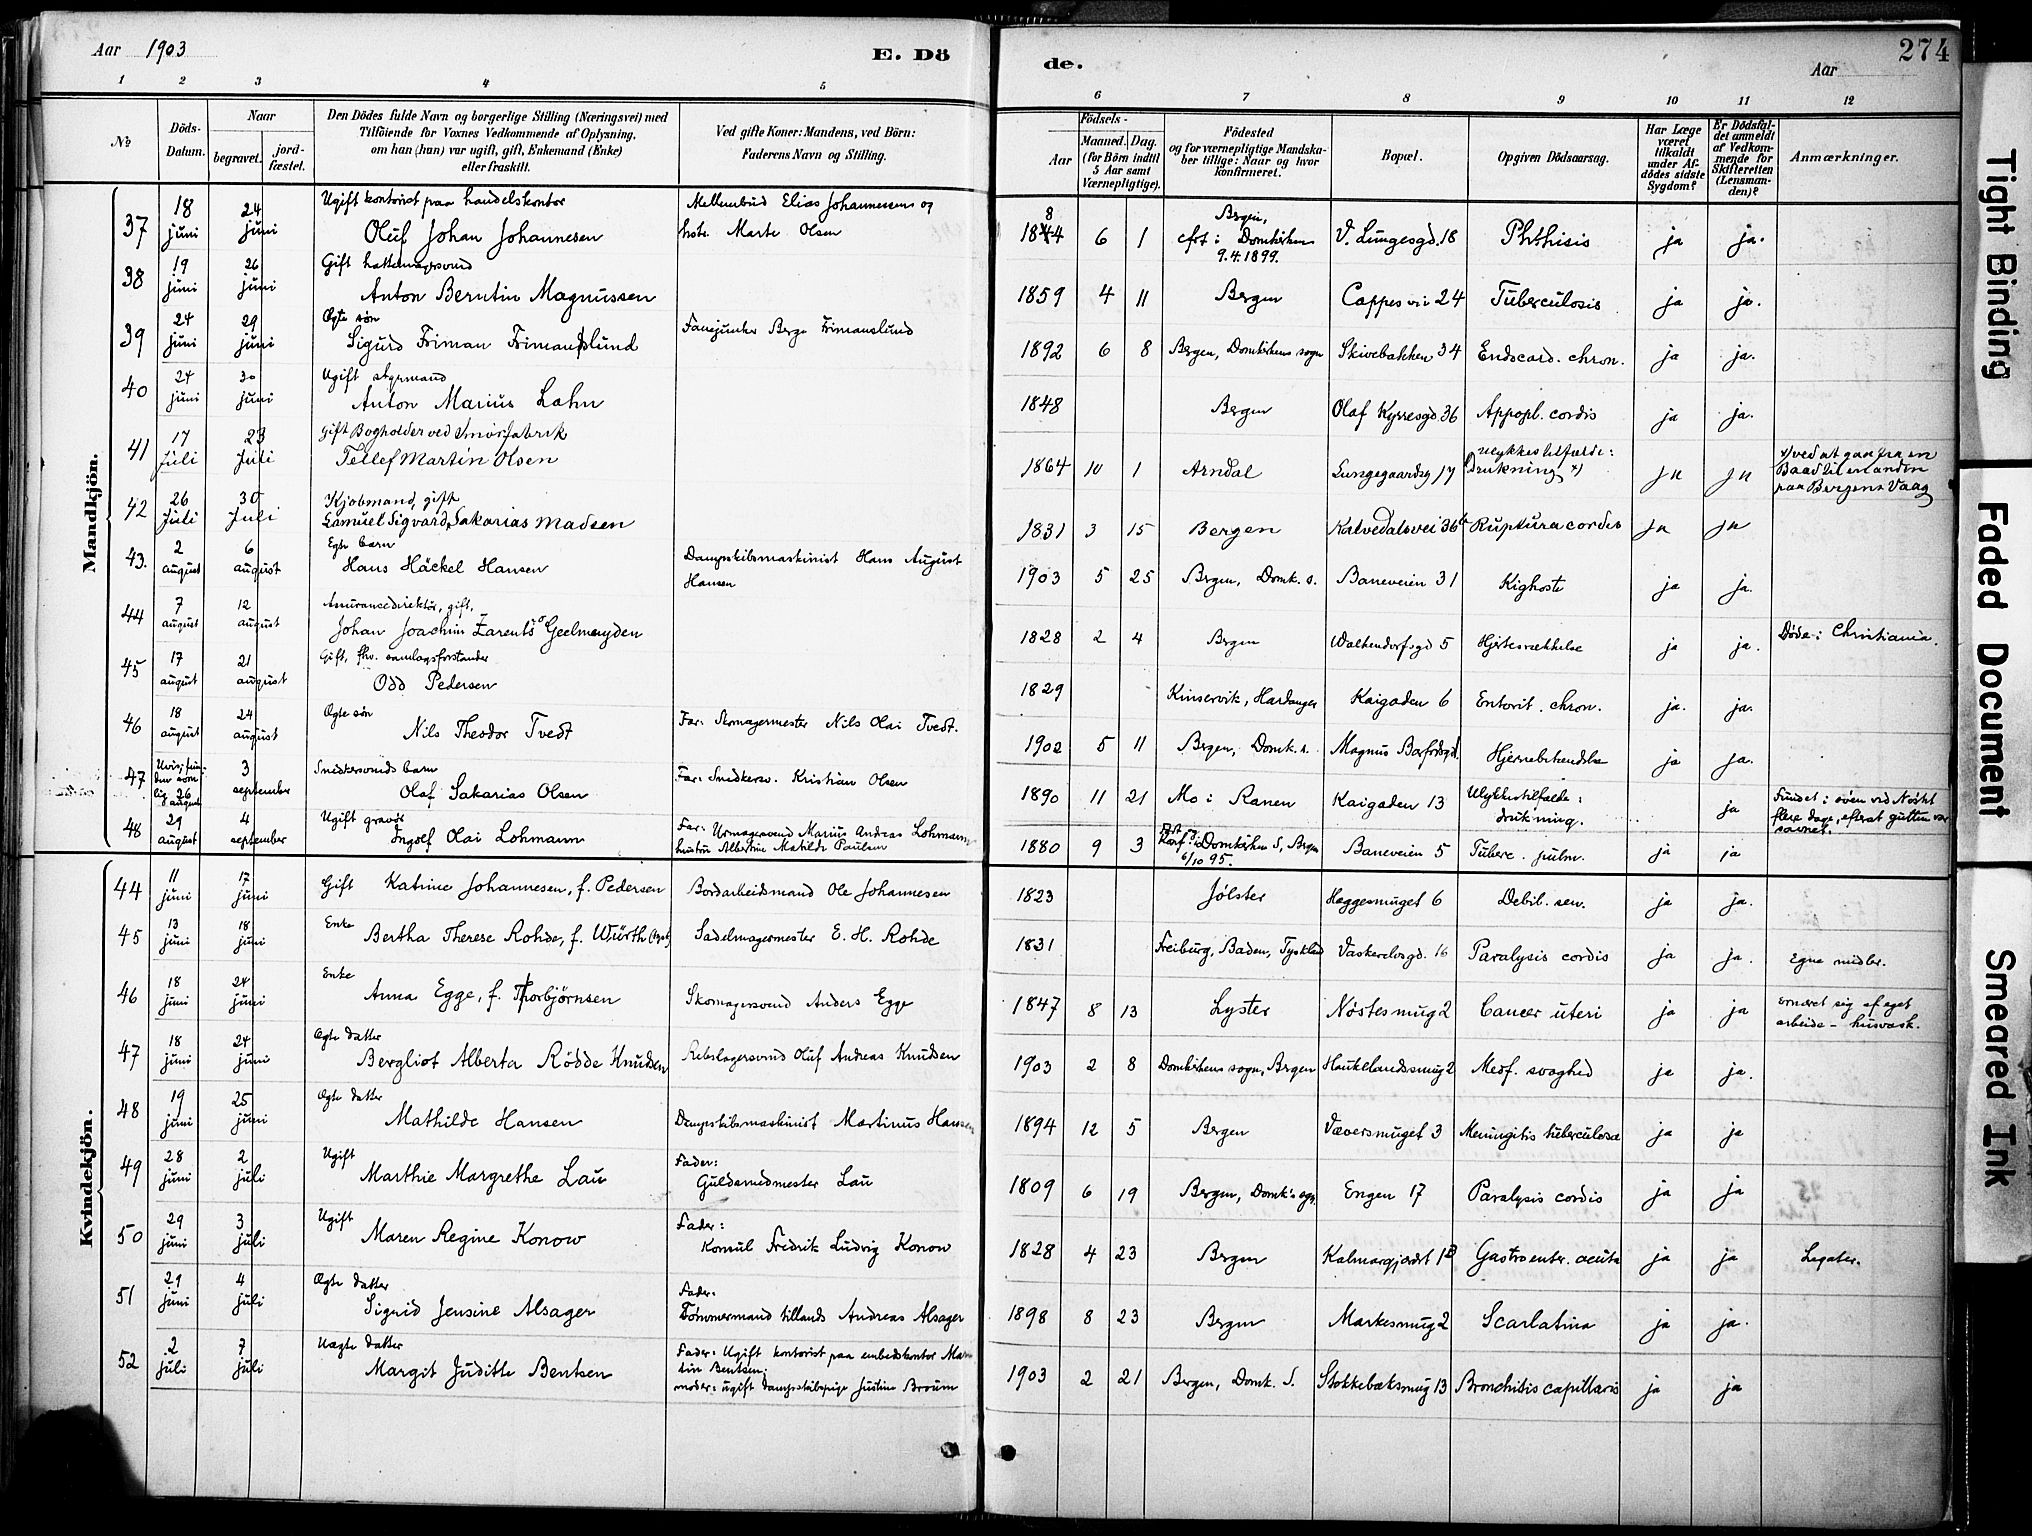 Aar 1903
E. Dö
de.
Aar
274
1 2 3 4 5 6 7 8 9 10 11 12
№
Döds-Datum.
Naar
begravet.
jordfæstet.
Den Dödes fulde Navn og borgerlige Stilling (Næringsvei) med
Tilföiende for Voxnes Vedkommende af Oplysning,
om han (hun) var ugift, gift, Enkemand (Enke)
eller fraskilt.
Ved gifte Koner: Mandens, ved Börn:
Faderens Navn og Stilling.
Födsels-
Aar
Maaned.
Dag.
(for Börn indtil
5 Aar samt
Værnepligtige).
Födested
og for værnepligtige Mandska-
ber tillige: Naar og hvor
konfirmeret.
Bopæl.
Opgiven Dödsaarsag.
Har Læge
været
tilkaldt
under Af-
dödes sidste
Sygdom?
Er Dödsfal-
det anmeldt
af Vedkom-
mende for
Skifteretten
(Lensman-
den)?
Anmærkninger.
Mandkjön.
37 18 juni 24 juni Ugift kontorist paa handelskontor Oluf Johan Johannesen Mellembud Elias Johannesens og hstr. Marte Olsen 1884 6 1 Bergen, cft i Domkirken 9.4.1899. V. Lungegd. 18 Phthisis ja ja.
38 19 juni 26 juni Gift hattemagersvend Anton Berntin Magnussen 1859 4 11 Bergen Cappes vei 24 Tuberculosis ja ja.
39 24 juni 29 juni Ægte søn Sigurd Friman Frimanslund Fanejunker Berge Frimanslund 1892 6 8 Bergen, Domkirkens sogn Skivebakken 34 Endocard. chron. ja ja.
40 24 juni 30 juni Ugift styrmand Anton Marius Lahn 1848 Bergen Olaf Kyrresgd. 36 Appopl. cordis ja ja.
41 17 Juli 23 Juli Gift Bogholder ved Smørfabrik Tellef Martin Olsen 1864 10 1 Arndal Lungegaardsg 17 Ulykkestilfælde: Drukning x) ja ja x) ved at gaa fra en Baad til en anden paa Bergens Vaag
42 26 Juli 30 Juli Kjøbmand, gift Samuel Sigvard Sakarias Madsen 1831 3 15 Bergen Kalvedalsvei 36b Ruptura cordis ja ja
43. 2 august 6 august Egte barn Hans Häckel Hansen Dampskibsmaskinist Hans August Hansen 1903 5 25 Bergen, Domk. s. Baneveien 31 Kighoste ja ja.
44 7 august 12 august Assurancedirektør, gift, Johan Joachim Zarents Geelmuyden 1828 2 4 Bergen Walkendorfsgd 5 Hjertesvækkelse ja ja. Døde i Christiania.
45 17 august 21 august Gift, fhv. samlagsforstander Odd Pedersen 1829 Kinservik, Hardanger Kaigaden 6 Enterit. chron. ja. ja.
46 18 august 24 august Ægte søn Nils Theodor Tvedt Far: Skomagermester Nils Olai Tvedt. 1902 5 11 Bergen, Domk. s. Magnus Barfodsgd. Hjernebetændelse ja ja.
47 26 august 3 september Snedkersvends barn Olaf Sakarias Olsen Far: Snedkersv. Kristian Olsen 1890 11 21 Mo i Ranen Kaigaden 13 Ulykkestilfælde: drukning. ja Fundet i søen ved Nøstet flere dage, efterat gutten var savnet.
48 29 august 4 september Ugift gravør Ingolf Olai Lohmann Far: Urmagersvend Marius Andreas Lohmann hustru Albertine Matilde Paulsen 1880 9 3 Konf. i Domkirken S, Bergen 6/10 95. Baneveien 5 Tuberc. pulm. ja ja
Kvindekjön.
44 11 juni 17 juni Gift Katrine Johannesen, f. Pedersen Bordarbeidsmand Ole Johannesen 1823 Jølster Heggesmuget 6 Debil. sen. ja ja.
45 13 juni 18 juni Enke Bertha Therese Rohde, f. Würth Sadelmagermester E. H. Rohde 1831 Freiburg, Baden, Tyskland Vaskerelvsgd. 16 Paralysis cordis ja ja. Egne midler.
46 18 juni 24 juni Enke Anna Egge, f. Thorbjørnsen Skomagersvend Anders Egge 1847 8 13 Lyster Nøstesmug 2 Cancer uteri ja ja ernæret sig af eget arbeide – husvask.
47 18 juni 24 juni Ægte datter Bergliot Alberta Rödde Knudsen Rebslagersvend Oluf Andreas Knudsen 1903 2 8 Domkirkens sogn, Bergen Hauklandssmug 2 Medf. svaghed ja ja.
48 19 juni 25 juni Ægte datter Mathilde Hansen Dampskibsmaskinist Martinus Hansen 1894 12 5 Bergen Væversmuget 3 Meningitis tuberculosa ja ja
49 28 juni 2 juli Ugift Marthie Margrethe Lau Fader: Guldsmedmester Lau 1809 6 19 Bergen, Domk's sogn Engen 17 Paralysis cordis ja ja
50 29 juni 3 juli Ugift Maren Regine Konow Fader: Konsul Fredrik Ludvig Konow 1828 4 23 Bergen Kalmargjerdet 1B Gastroenter. acuta ja ja Legater.
51 29 juni 4 juli Ægte datter Sigrid Jensine Alsager Fader: Tømmermand tillands Andreas Alsager 1898 8 23 Bergen Markesmug 2 Scarlatina ja ja.
52 2 juli 7 juli Uægte datter Margit Judithe Bentsen Fader: Ugift kontorist paa embedskontor Martin Bentsen; moder: ugift dampskibspige Justine Broum 1903 2 21 Bergen, Domk. S. Stokkebæksmug 13 Bronchitis capillaris ja ja
Tight Binding
Faded Document
Smeared Ink